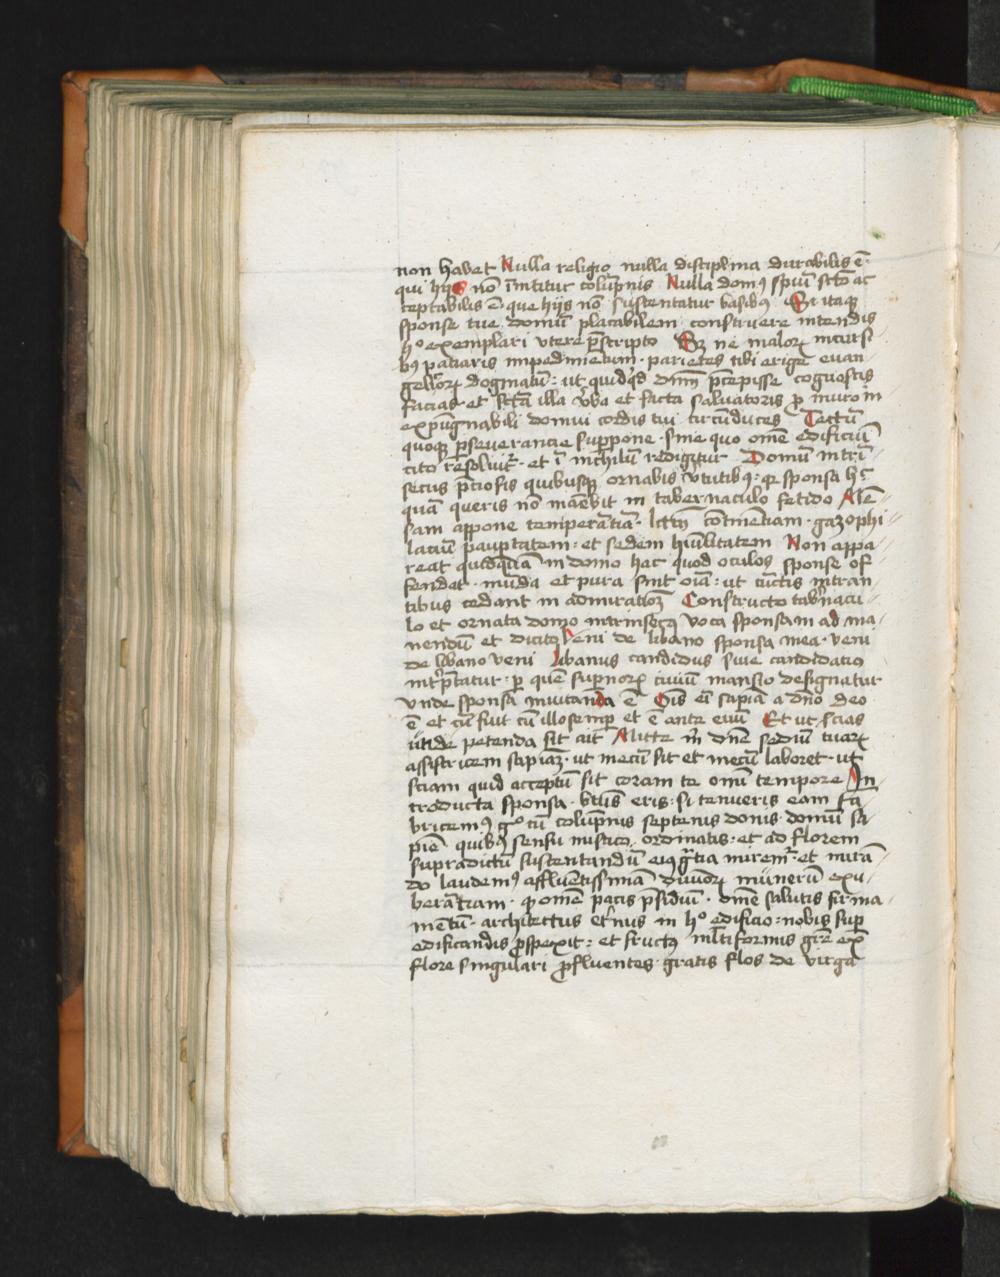 non habet Nulla religio nulla disciplina durabilis ē·
qui hijs nō īnititur colūpnis Nulla domꝰ spūi scō ac
ceptabilis ē· que hijs nō sustentatur basibꝰ Si itaqꝫ
sponse tue domū placabilem construere intendis
hͦ exemplari utere p̄scripto Sꝫ ne malorꝫ incursi
bꝰ paciaris impedimētum· parietes tibi erige euan
gelicorꝫ dogmatū: ut quidqͥd dn̄m p̄cepisse cognoscis
facias et sc̄a illa v̓ba et facta saluatoris ꝓ muro in
expūgnabili domui cordis tui circūduces Tectū
quoqꝫ ꝑseuerancie suppone· sine quo om̄e edificiū
cito resoluit̓· et ī nichilū redigitur Domū intrī
secus p̄ciosis quibusqꝫ ornabis v̓tutibꝰ: qꝛ sponsa hͨ
quā queris nō manēbit in tabernaculo fetido Mē
sam appone temperātiā· lectū cōtinētiam· gazophi
laciū pauꝑtatem: et sedem hūilitatem Non appa
reat quidquā in domo hac quod oculos sponse of
fendat· mūda et pura sint oīa: ut cūctis intran
tibus cedant in admiratiōꝫ Constructo tab̓nacu
lo et ornata domo intrinsecꝰ voca sponsam ad ma
nendū et dicito Veni de libano sponsa mea· veni
de libano veni Libanus candidus siue candidatio
int̓p̄tatur: ꝑ quē supnorꝫ ciuiū mansio designatur
vnde sponsa inuitanda ē Oīs eī sapīa a dn̄o deo
ē et cū fuit cū illo semꝑ et ē ante euū Et ut scias
ūnde petenda sit ait Mitte m̄ dn̄e sediū tuarꝫ
assistricem sapīaꝫ· ut mecū sit et mecū laboret· ut
sciam quid acceptū sit coram te om̄i tempore In
troducta sponsa· bt̄us eris· si tenueris eam Fa
bricemꝰ gͦ cū colūpnis septenis donis domū sa
piē quibꝰ sensu mistico ordinatis· et ad florem
supradictū sustentandū eiꝰ gr̄tia mirem̓· et mirā
do laudemꝰ affluentissimā diuinorꝫ munerū exu
berātiam· qꝫ om̄e pacis p̄sidiū· om̄e salutis firma
mētū· architectus et̓nus in hͦ edificio: nobis suꝑ
edificandis ꝓspexit: et fructꝰ ml̓tiformis gr̄e ex
flore singulari ꝓfluentes gratis flos de virga